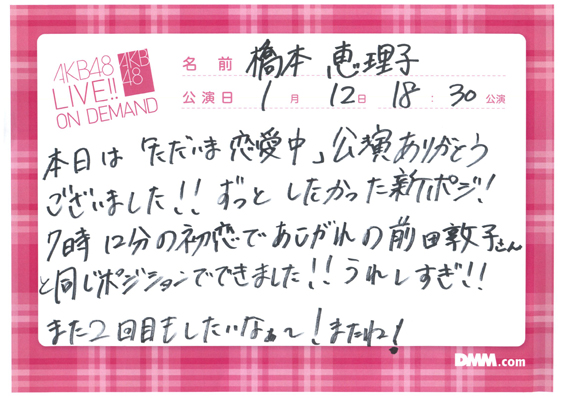 AKB48
LIVE!!
ON DEMAND
AKB
48
名前 橋本 恵理子
公演日 1月 12日 18:30 公演
本日は「ただいま恋愛中」公演ありがとう
ございました!! ずっと したかった新ポジ!
7時12分の初恋であこがれの前田敦子さん
と同じポジションでできました!! うれしすぎ!!
また2回目もしたいなぁ〜! またね!
DMM.com